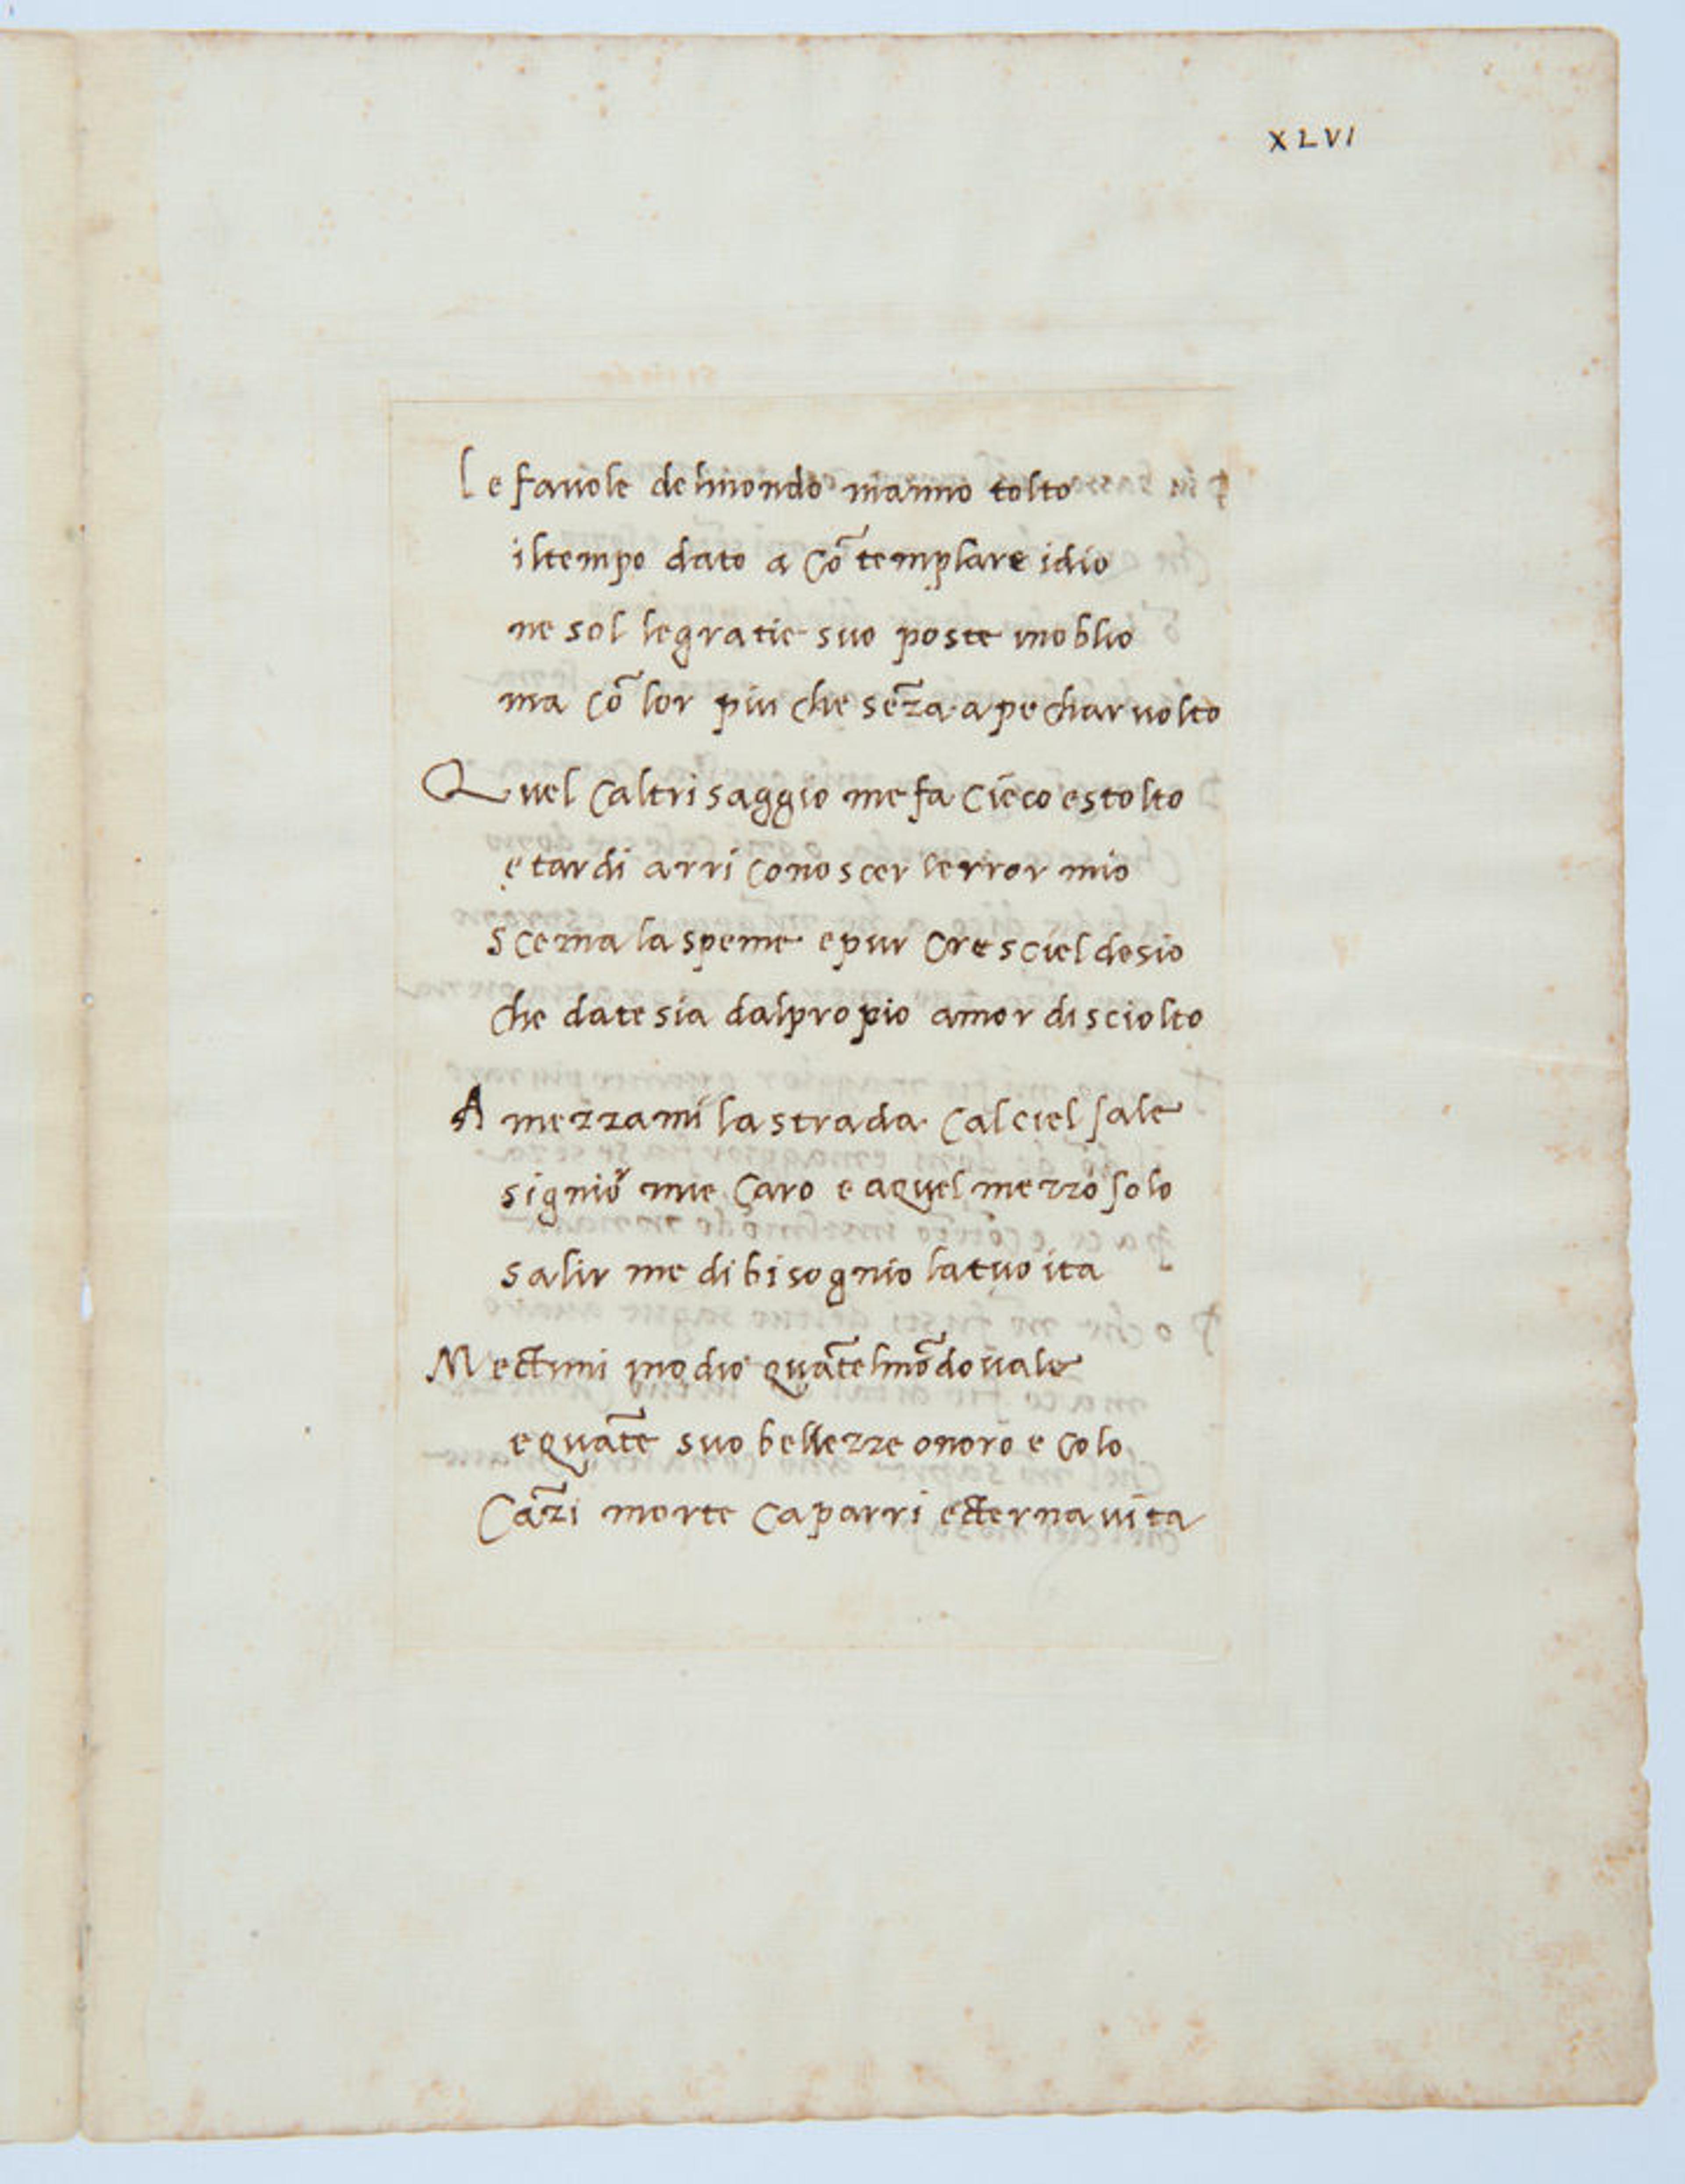 XLVI
Le fauole delmondo manno tolto
iltempo dato a cõtemplare idio
ne sol legratie suo poste inoblio
ma cõ lor piu che sẽza a pechar uolto
Quel caltri saggio me fa cieco estolto
e tardi arriconoscer lerror mio
scema la speme epur cresciel desio
che date sia dalpropio amor disciolto
A mezzami la strada calciel sale
signiõ mie caro e aquel mezzo solo
salir me di bisognio latuo ita
Mectimi inodio quãtelmõdouale
e quãte suo bellezze onoro e colo
cãzi morte caparri ecterna uita